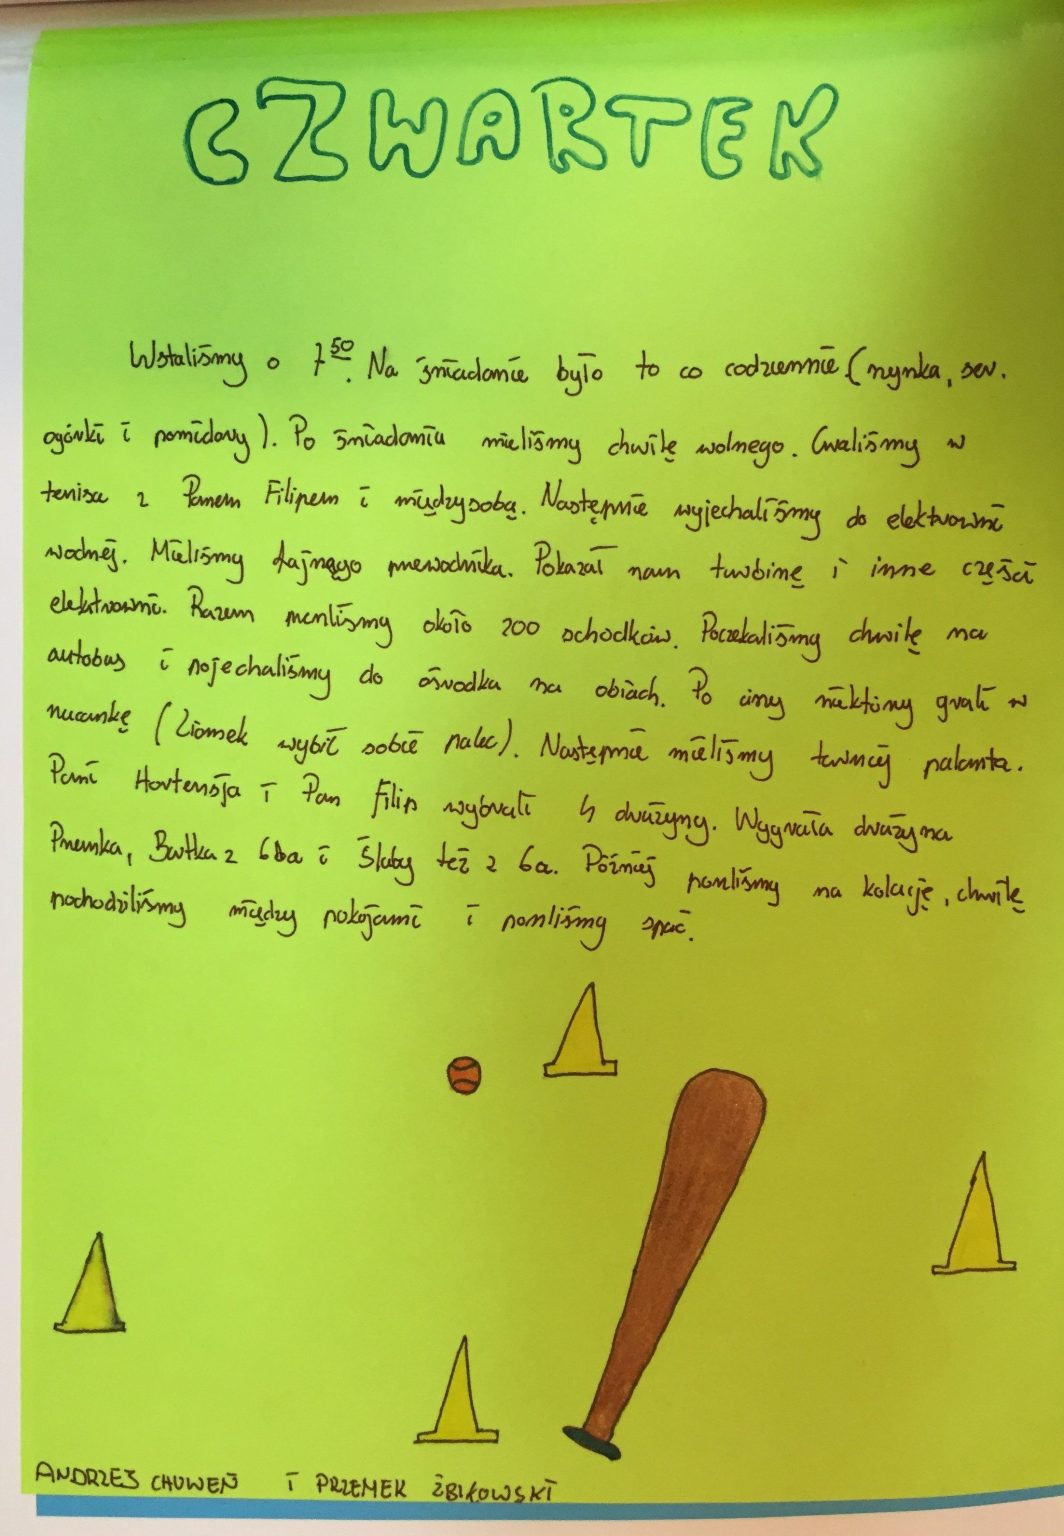 CZWARTEK
Wstaliśmy o 7⁵⁰. Na śniadanie było to co codziennie (szynka, ser,
ogórki i pomidory). Po śniadaniu mieliśmy chwilę wolnego. Graliśmy w
tenisa z Panem Filipem i międzysobą. Następnie wyjechaliśmy do elektrowni
wodnej. Mieliśmy fajnego przewodnika. Pokazał nam turbinę i inne części
elektrowni. Razem przeszliśmy około 200 schodków. Poczekaliśmy chwilę na
autobus i pojechaliśmy do ośrodka na obiach. Po ciszy niektórzy grali w
ruczankę (Ziomek wybił sobie palec). Następnie mieliśmy turniej palanta.
Pani Hortensja i Pan Filip wybrali 4 drużyny. Wygrała drużyna
Przemka, Bartka z 6ba i Słaby też z 6a. Później poszliśmy na kolację, chwilę
pochodziliśmy między pokojami i poszliśmy spać.
ANDRZEJ CHUWEŃ I PRZEMEK ŻBIKOWSKI